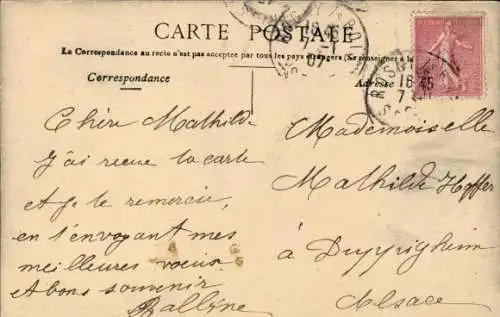 CARTE POSTALE
La Correspondance au recto n'est pas acceptée par tous les pays étrangers (Se renseigner à la
Correspondance
Adresse
ROSNY
16 45
7
Chère Mathilde
J'ai reçue la carte
et je te remercie,
en t'envoyant mes
meilleures voeux
et bons souvenir
Mademoiselle
Mathilde Hoffer
à Duppigheim
Alsace